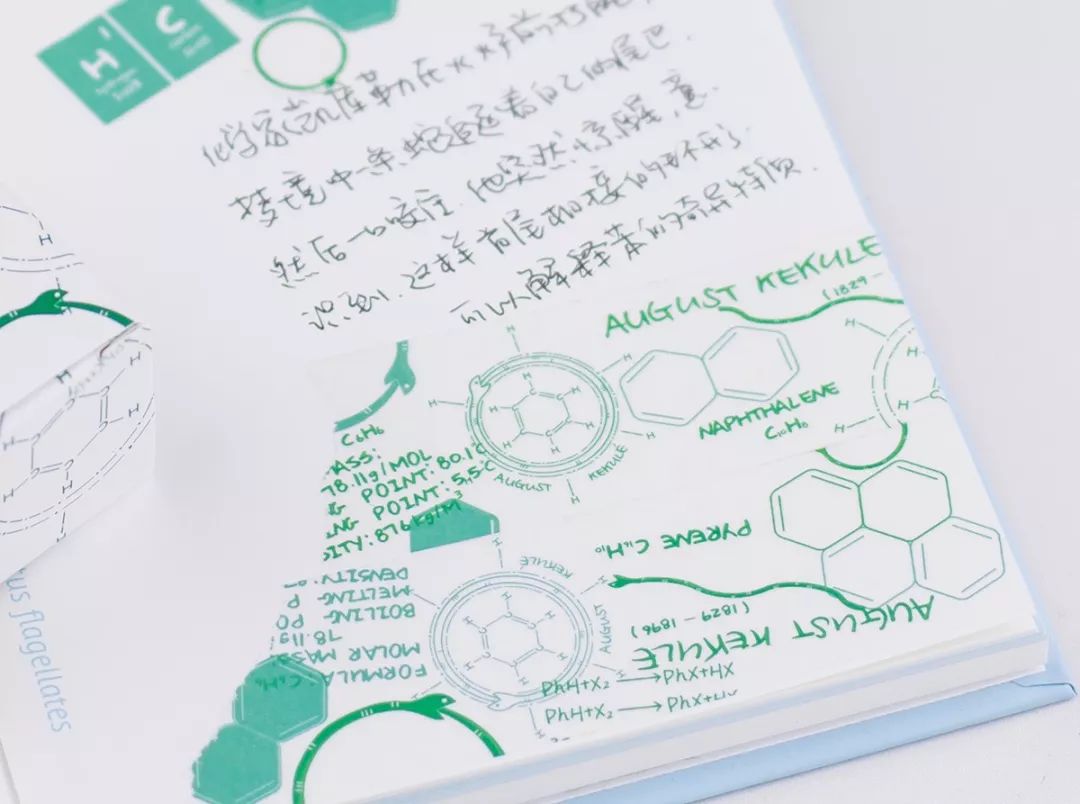 H
C
化学家凯库勒在火炉前打
梦境中一条蛇追逐着自己的尾巴.
然后一口咬住.他突然惊醒,意
识到,这样首尾相接的环形
可以解释苯的奇异特质.
AUGUST KEKULE
(1829 -
H
NAPHTHALENE
C10H8
C6H6
ASS:
78.11g/MOL
G POINT: 80.1°C
NG POINT: 5,5°C
SITY: 876kg/M3
AUGUST KEKULE
PYRENE C16H10
KEKULE
AUGUST
AUGUST KEKULE
(1829 - 1896)
DENSITY:
MELTING P
BOILING PO
78.11g
MOLAR MASS
FORMULA C6H6
PhH+X2 → PhX+HX
PhH+X2 → PhX+
us flagellates